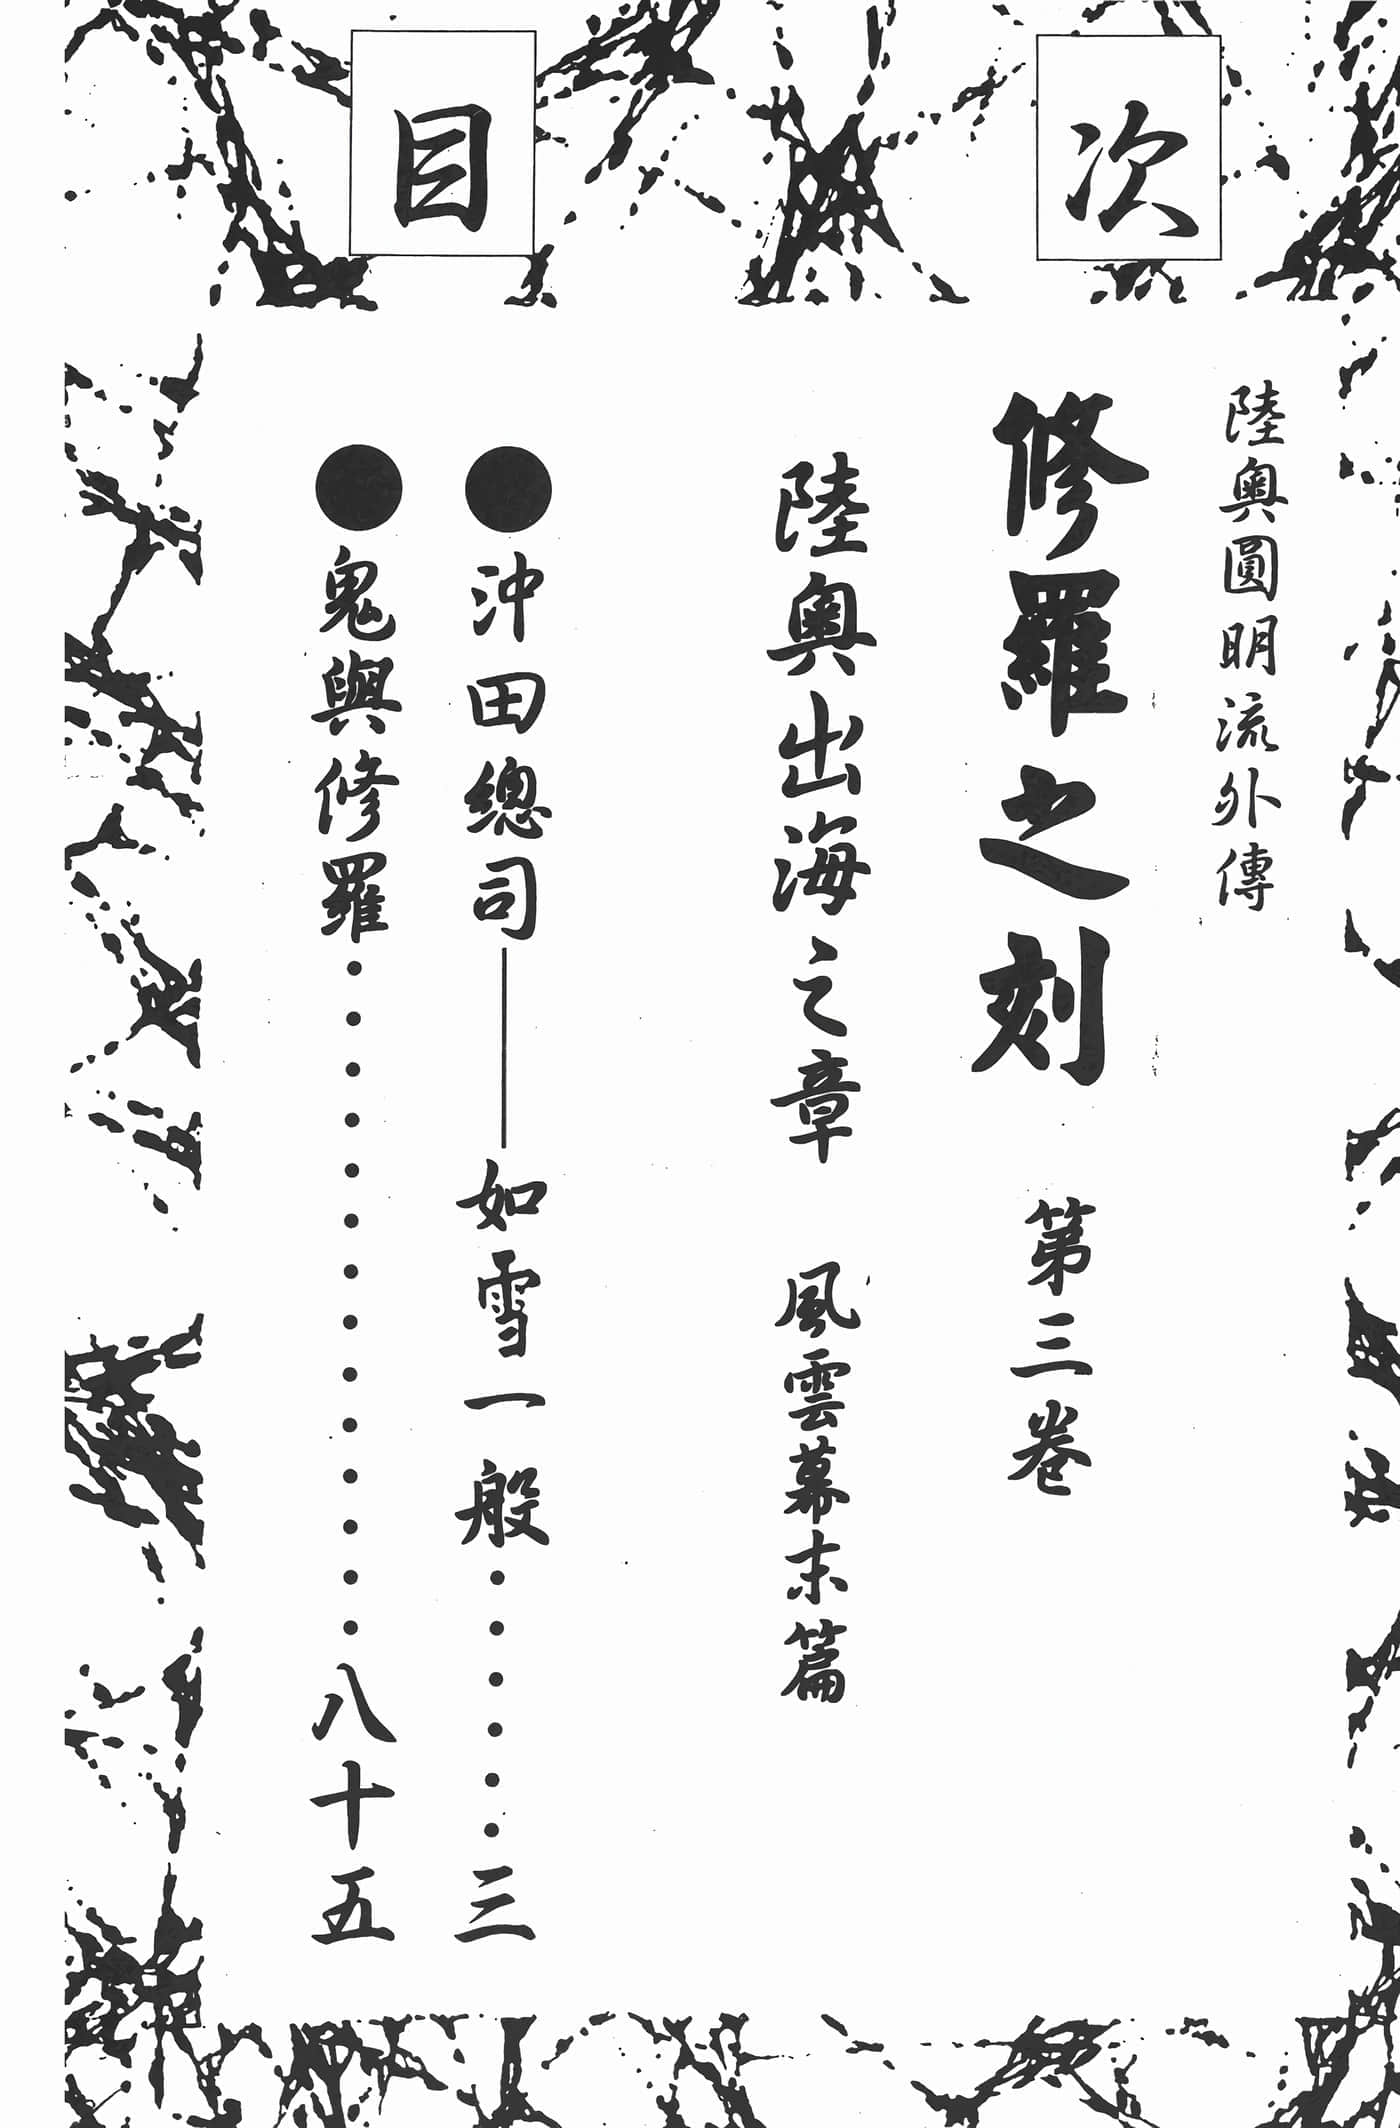 目次
陸奧圓明流外傳
修羅之刻 第三卷
陸奧出海之章 風雲幕末篇
●沖田總司——如雪一般⋯⋯三
●鬼與修羅⋯⋯⋯⋯⋯八十五